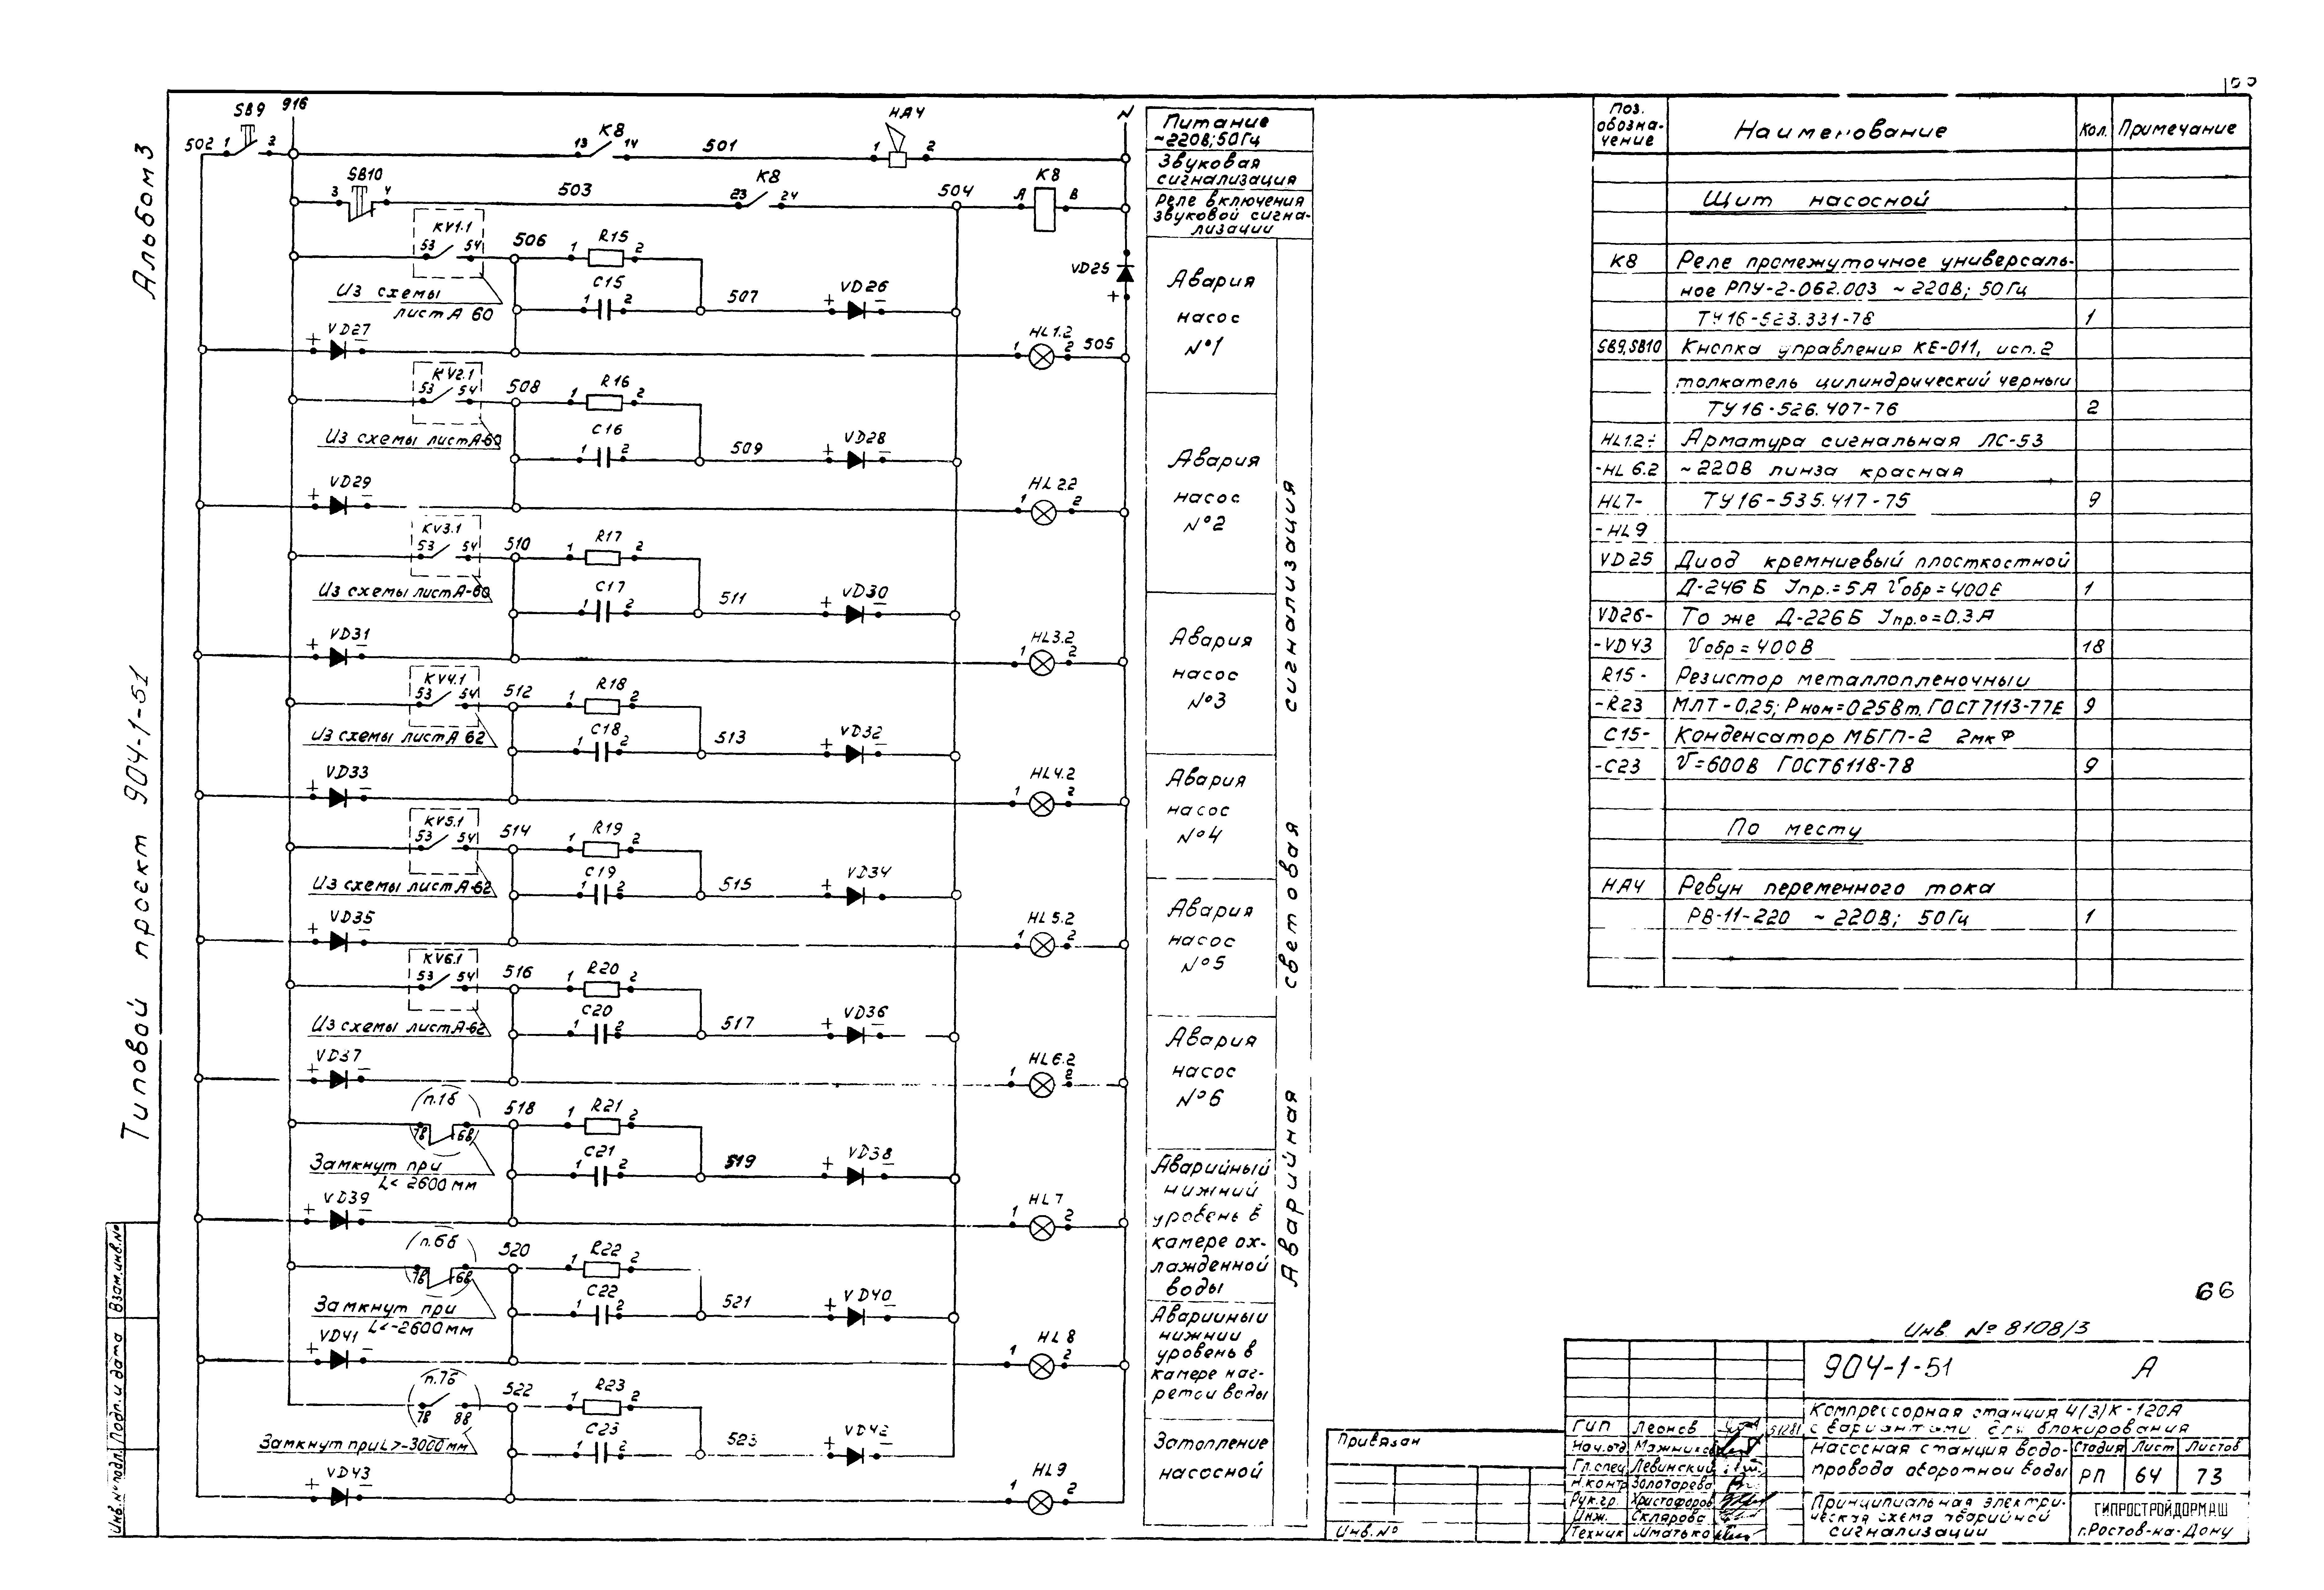 Альбом 3
Типовой проект 904-1-51
SB9
916
N
502 1 2
K8
13 14
501
НА4
1 2
SB10
3 4
503
K8
23 24
504
K8
А В
KV1.1
53 54
506
1 R15 2
C15
1 2
507
VD26
+ -
VD25
+
Из схемы
лист А 60
VD27
+ -
HL1.2
1 2
505
KV2.1
53 54
508
1 R16 2
C16
1 2
509
VD28
+ -
Из схемы лист А-60
VD29
+ -
HL2.2
1 2
KV3.1
53 54
510
1 R17 2
C17
1 2
511
VD30
+ -
Из схемы лист А-60
VD31
+ -
HL3.2
1 2
KV4.1
53 54
512
1 R18 2
C18
1 2
513
VD32
+ -
Из схемы лист А 62
VD33
+ -
HL4.2
1 2
KV5.1
53 54
514
1 R19 2
C19
1 2
515
VD34
+ -
Из схемы лист А-62
VD35
+ -
HL5.2
1 2
KV6.1
53 54
516
1 R20 2
C20
1 2
517
VD36
+ -
Из схемы лист А-62
VD37
+ -
HL6.2
1 2
п.1б
7в 6в
518
1 R21 2
C21
1 2
519
VD38
+ -
Замкнут при
L<-2600мм
VD39
+ -
HL7
1 2
п.6б
7в 6в
520
1 R22 2
C22
1 2
521
VD40
+ -
Замкнут при
L<-2600мм
VD41
+ -
HL8
1 2
п.7б
7в 8в
522
1 R23 2
C23
1 2
523
VD42
+ -
Замкнут при L>-3000мм
VD43
+ -
HL9
1 2
Питание
~220В; 50Гц
Звуковая
сигнализация
Реле включения
звуковой сигна-
лизации
Авария
насос
№1
Авария
насос
№2
Авария
насос
№3
Авария
насос
№4
Авария
насос
№5
Авария
насос
№6
Аварийный
нижний
уровень в
камере ох-
лажденной
воды
Аварийный
нижний
уровень в
камере наг-
ретой воды
Затопление
насосной
Аварийная световая сигнализация
Поз. обозна-чение Наименование Кол. Примечание
Щит насосной
K8 Реле промежуточное универсаль-
ное РПУ-2-062.003 ~220В; 50Гц
ТУ16-523.331-78 1
SB9,SB10 Кнопка управления КЕ-011, исп.2
толкатель цилиндрический черный
ТУ16-526.407-76 2
HL1.2÷ Арматура сигнальная ЛС-53
-HL6.2 ~220В линза красная
HL7- ТУ16-535.417-75 9
-HL9
VD25 Диод кремниевый плосткостной
Д-246Б Iпр.=5А Uобр=400В 1
VD26- То же Д-226Б Iпр.=0.3А
-VD43 Uобр=400В 18
R15- Резистор металлопленочный
-R23 МЛТ-0,25; Рном=0.25Вт. ГОСТ7113-77Е 9
C15- Конденсатор МБГП-2 2мкФ
-C23 U=600В ГОСТ6118-78 9
По месту
НА4 Ревун переменного тока
РВ-11-220 ~220В; 50Гц 1
66
Инв. № 8108/3
904-1-51 А
Компрессорная станция 4(3)К-120А
с вариантами для блокирования
ГИП Леонов
Нач.отд
Гл.спец Левинский
Н.контр Золотарева
Рук.гр. Христофоров
Инж. Склярова
Техник
Насосная станция водо-
провода оборотной воды
Стадия Лист Листов
РП 64 73
Принципиальная электри-
ческая схема аварийной
сигнализации
ГИПРОСТРОЙДОРМАШ
г.Ростов-на-Дону
Привязан
Инв.№
Инв.№подл. Подп. и дата Взам.инв.№